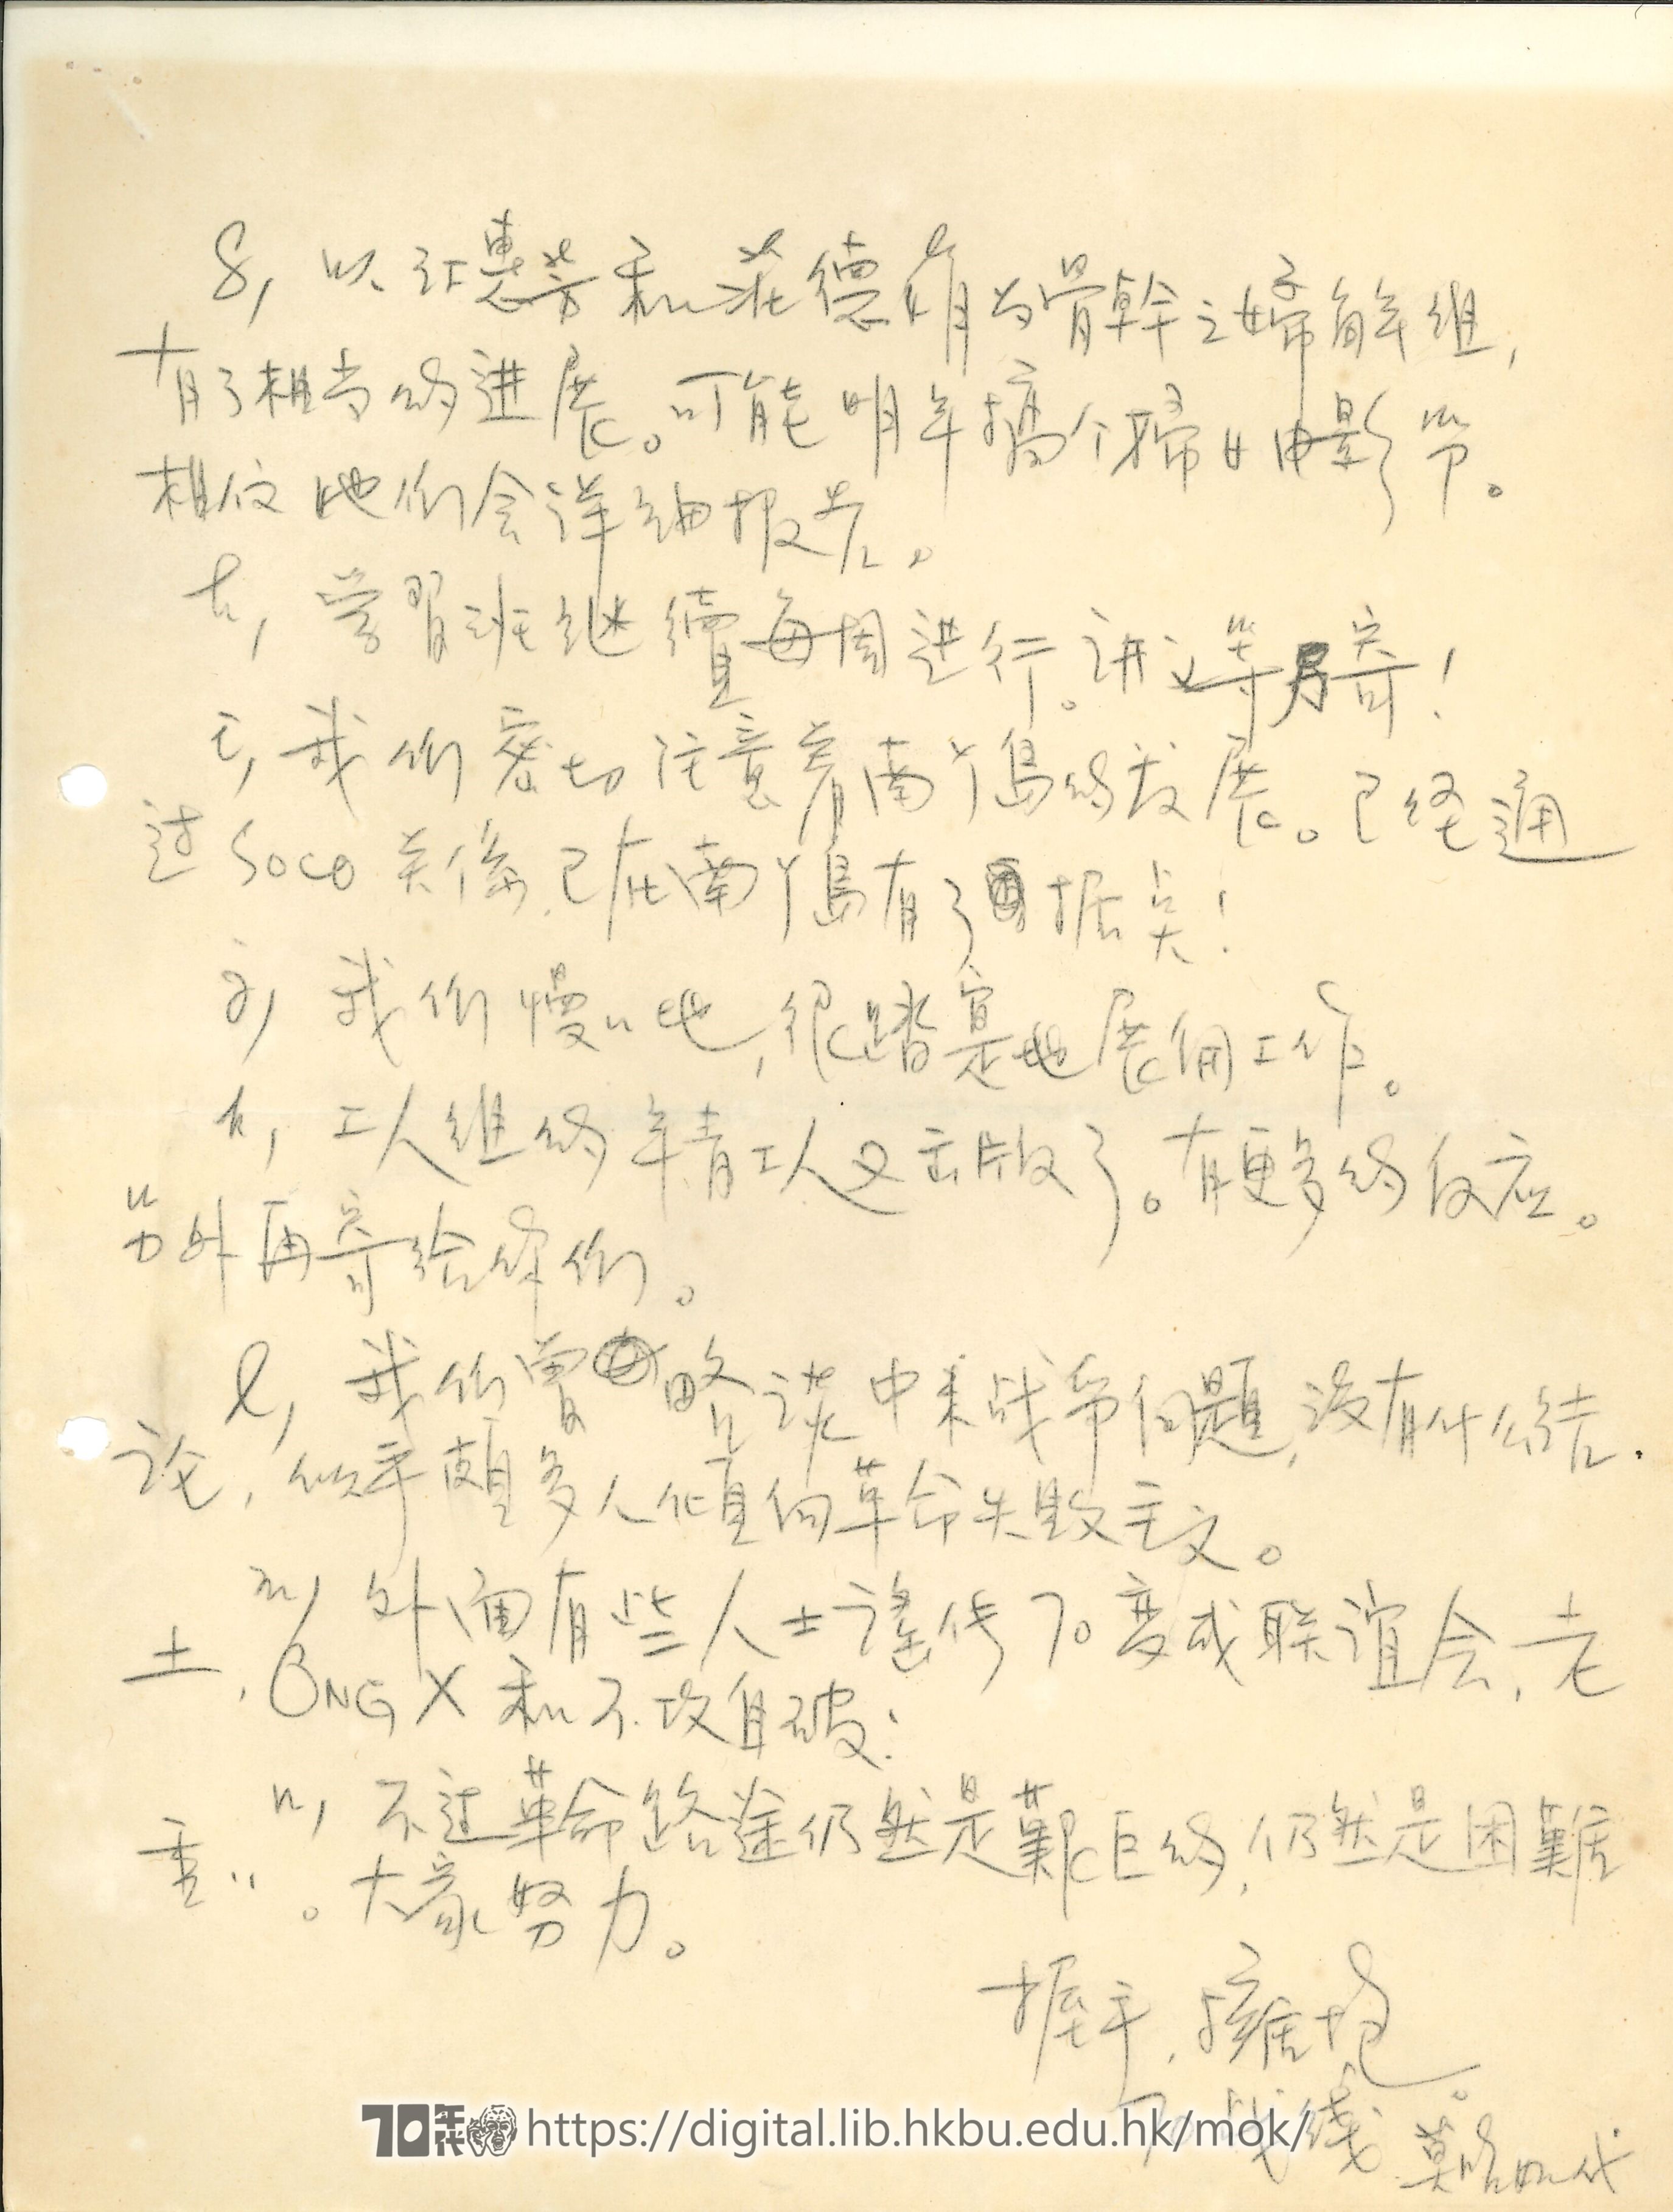 g, 以江惠芳和茫德媋为骨幹之婦解组,
有了相当的进展。可能明年搞个婦女电影节。
相信她们会详细报告。
h, 学習班继續每周进行。讲义等另寄!
i, 我们密切注意着南丫岛的发展。已经通
过 SOCO 关係,已在南丫島有了据点!
j, 我们慢〻地,很踏實地展開工作。
k, 工人组的年青工人又出版了。有更多的反应。
另外再寄给你们。
l, 我们曾略谈中来战争问題,没有什么结
论,似乎頗多人傾向革命失败主义。
m, 外面有些人士謠传70变成联谊会,老
土,ONG X 和不攻自破!
n, 不过革命路途仍然是艱巨的,仍然是困難
重〻。大家努力。
握手,擁抱。
70战线 莫昭如代
70年代 https://digital.lib.hkbu.edu.hk/mok/